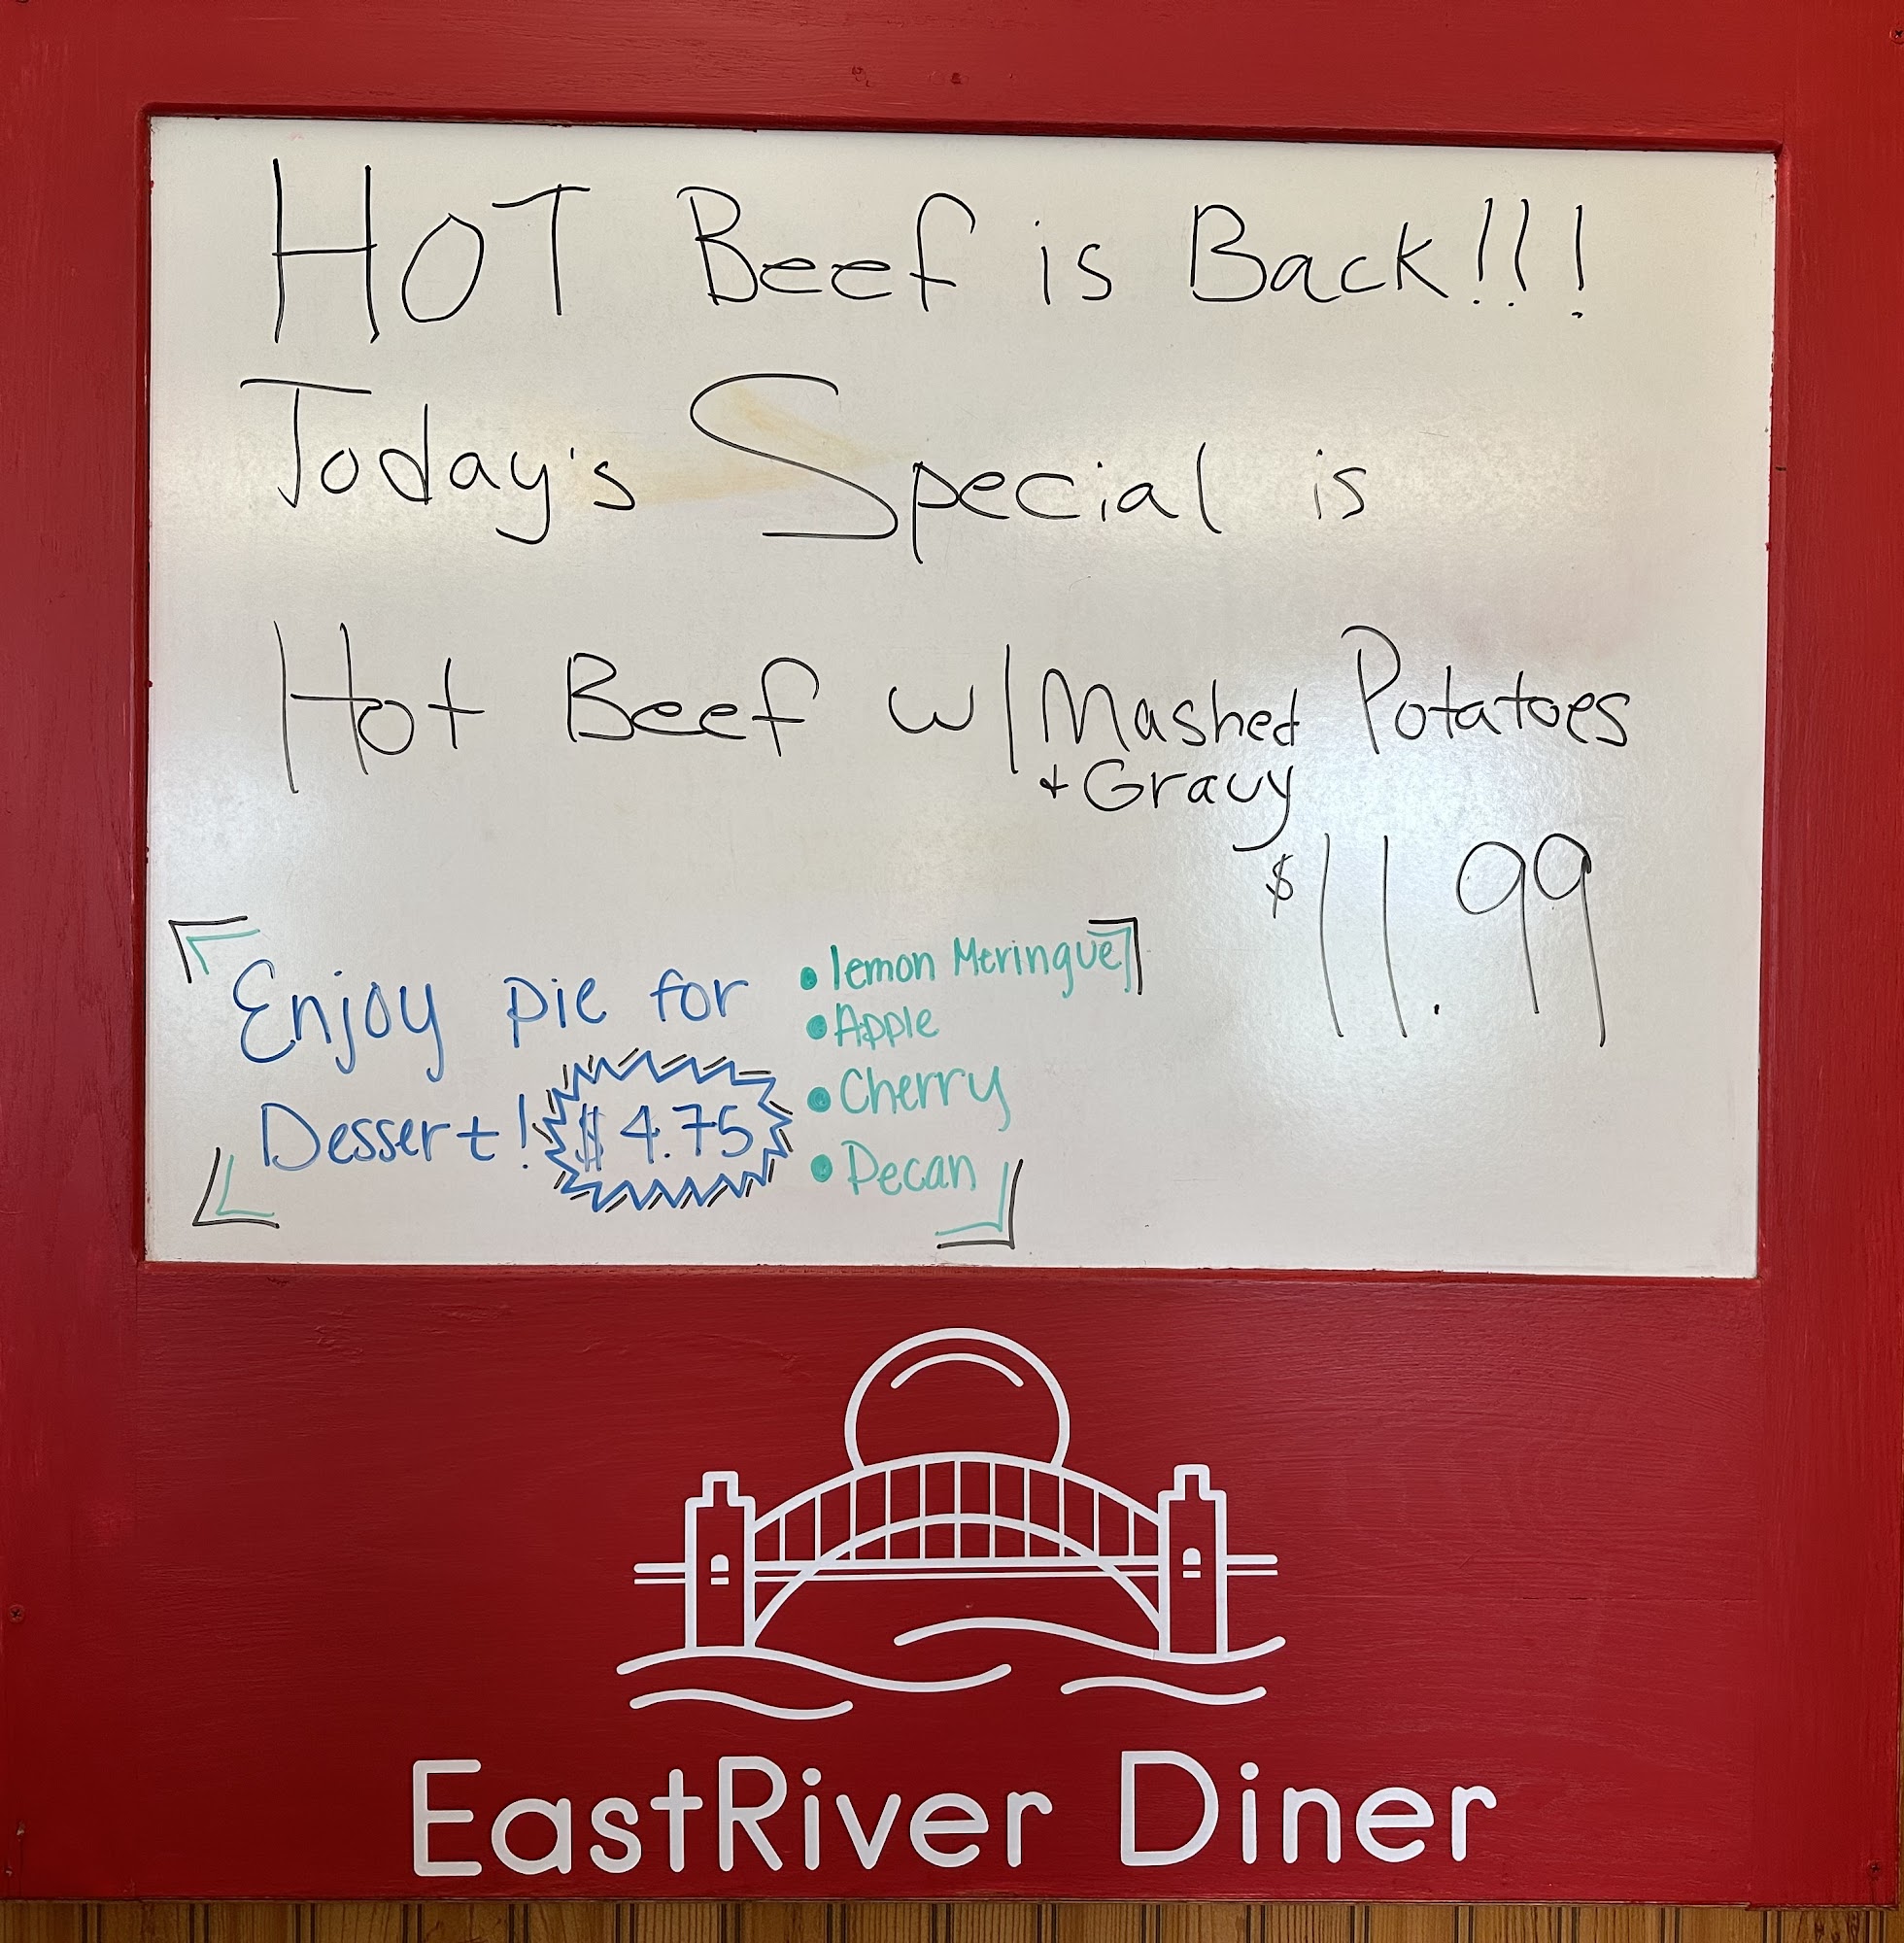 HOT Beef is Back!!!
Today's Special is
Hot Beef w/ Mashed Potatoes
+ Gravy
$11.99
Enjoy pie for
Dessert! $4.75
• lemon Meringue
• Apple
• Cherry
• Pecan
EastRiver Diner